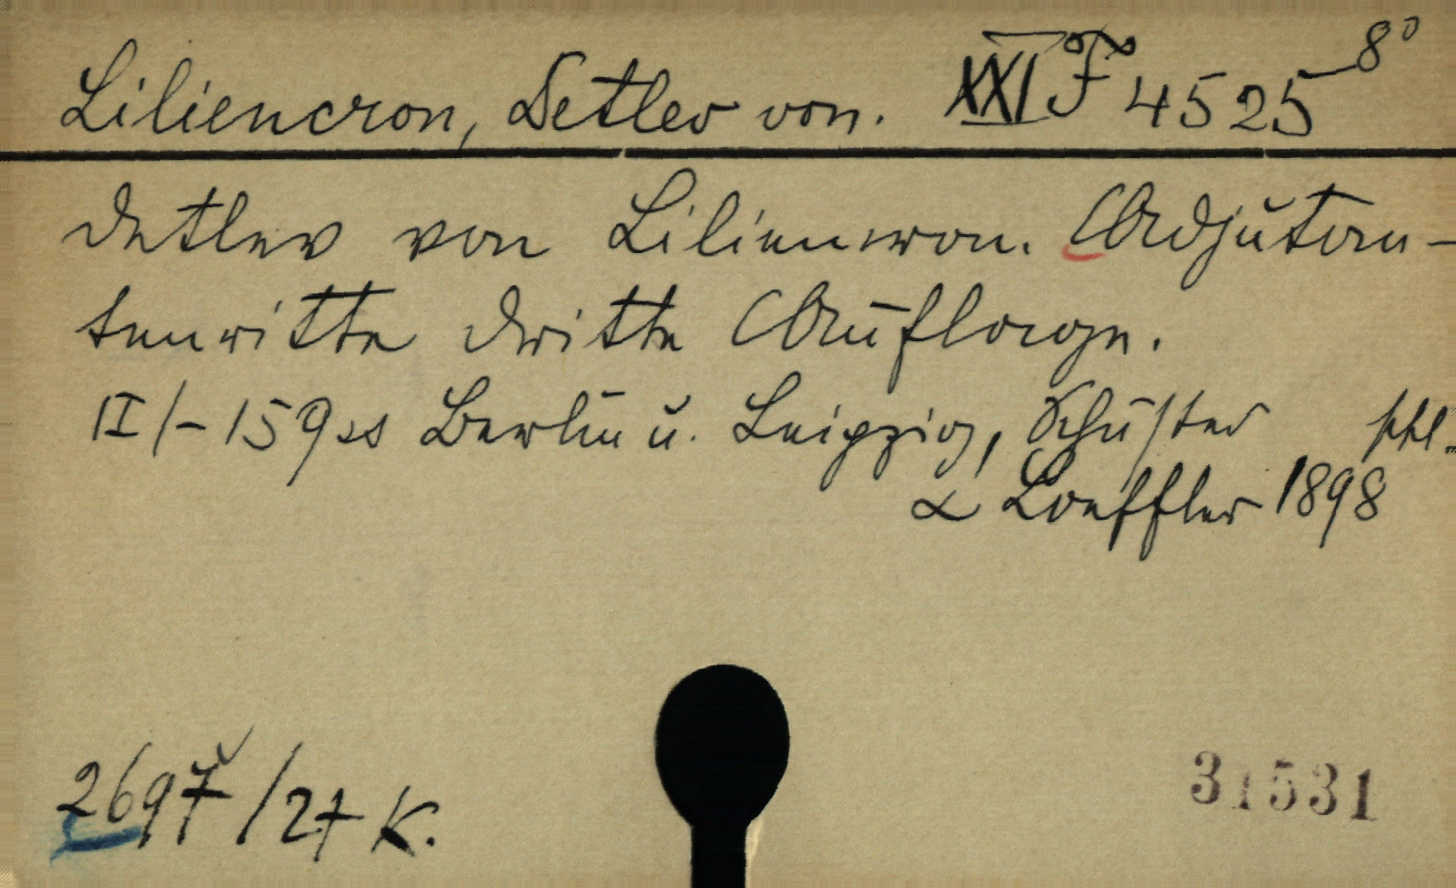 Liliencron, Detlev von. XXI F 4525 8°
Detlev von Liliencron. Adjutan-
tenritte dritte Auflage.
II/-159 ss Berlin u. Leipzig, Schuster
& Loeffler 1898
2697/27 K.
31531